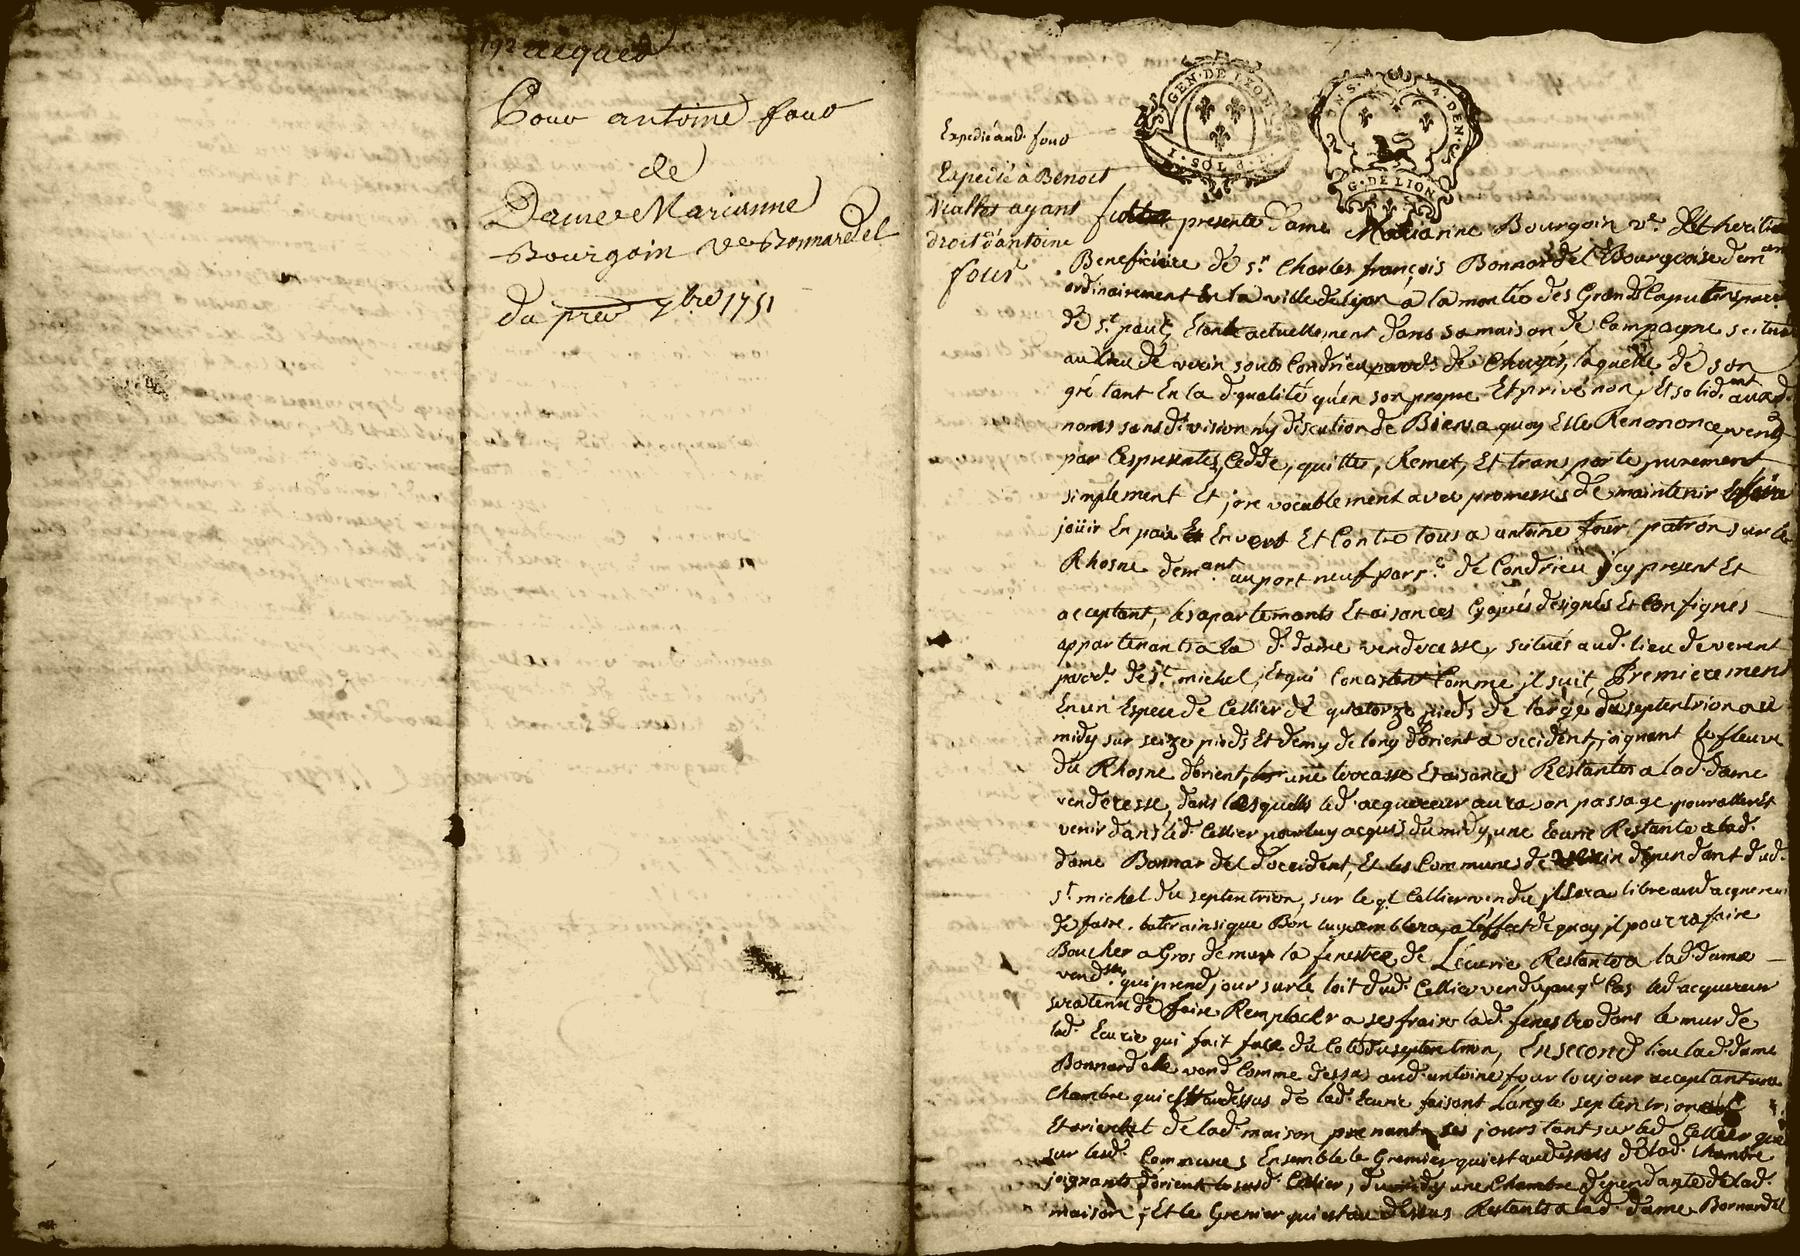 acquis
Pour antoine four
de
Dame Marianne
Bourgoin Ve Bonnardel
du prer 7bre 1751
GEN. DE LYON
1. SOL
G. DE LION
Expedié aud. four
Expedié à Benoit
ayant
droit d'antoine
four
fut presente Dame Marianne Bourgoin ve. Et heritiere
Beneficiere de sr. Charles françois Bonnardel Bourgeoise dem
ordinairement En la ville de lyon a la montée des Grands Capucins
de st. paul, Etant actuellement dans sa maison de Campagne scitué
au lieu de verin sous Condrieu parr. de Chuyés, laquelle de son
gré tant En la d. qualité qu'en son propre Et privé nom, Et solid.
noms sans division ny discution de Biens a quoy Elle Renononce, vend
par Ces presentes, Cedde, quitte, Remet, Et transporte purement
simplement Et jrrevocablement avec promesses de maintenir
joüir En paix Et Envers Et Contre tous a antoine four patron sur le
Rhosne demant. au port neuf parr.e de Condrieu jcy present Et
acceptant, les apartements Et aisances Cy aprés designés Et Confignés
appartenants a la d. dame venderesse, scitués aud. lieu de verent
parr. de st. michel, Et qui Consistent Comme jl suit, Premierement
En un Espece de Cellier de quatorze pieds de large du septentrion au
midy sur seize pieds Et demy de long d'orient a occident, joignant le fleuve
du Rhosne d'orient, une terrasse Et aisances Restantes a lad. dame
venderesse, dans lesquelles led. acquereur aura son passage pour aller Et
venir dans led. Cellier par luy acquis du midy, une Ecurie Restante a lad.
dame Bonnardel d'occident, Et les Communes de verin dependant dud.
st. michel du septentrion, sur le ql. Cellier vendu jl sera libre aud. acquereur
de faire batir ainsi que Bon luy semblera, a l'effect de quoy jl pourra faire
Boucher a Gros de mur la fenestre de L'ecurie Restante a lad. dame
vend. qui prend jour sur le toit dud. Cellier vendu, auql. Cas led. acquereur
sera tenu de faire Remplacer a ses frais lad. fenestre dans le mur de
lad. Ecurie qui fait face du Coté du septentrion, En second lieu lad. dame
Bonnardelle vend Comme dessus aud. antoine four toujour acceptant une
Chambre qui Est au dessus de lad. Ecurie faisant L'angle septentrional
Et oriental de lad. maison prenant ses jours tant sur led. Cellier que
sur lesd. Communes Ensemble le Grenier qui est au dessus de lad. Chambre
joignants d'orient le susd. Cellier, du midy une Chambre dependante de lad.
maison, Et le Grenier qui est au dessus Restants a lad. dame Bonnardel